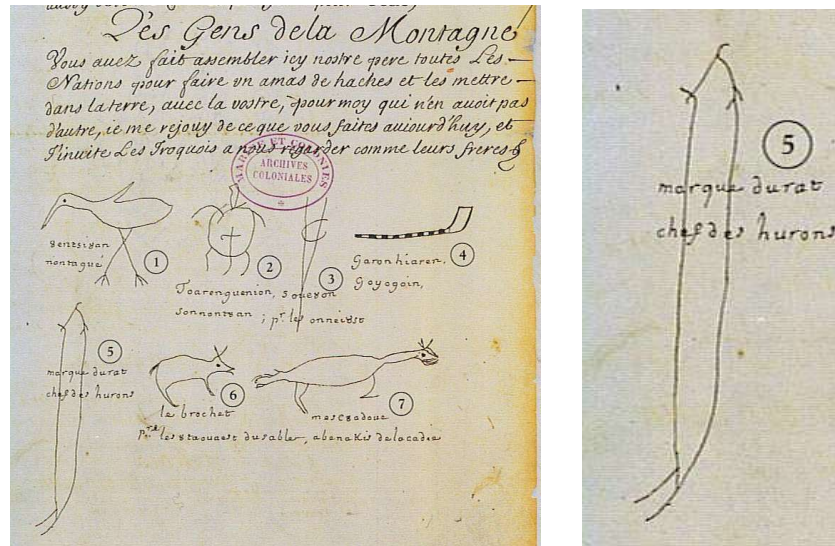 Les Gens dela Montagne
Vous auez fait assembler icy nostre pere toutes Les
Nations pour faire vn amas de haches et les mettre
dans laterre, auec la vostre, pour moy qui n'en auoit pas
d'autre, ie me rejouy de ce que vous faites auiourd'huy, et
J'inuite Les Iroquois a nous regarder comme leurs freres
ARCHIVES
COLONIALES
1
8entsi8an
nontagué
2
Toarenguenion,
sonnont8an
3
; pr. les onnei8st
4
Garonhiaren,
Goyogoin,
5
marque durat
chef des hurons
6
le brochet
7
mescoadoue
pr. les 8taoua8st dusable, abenakis delacadie
5
marque durat
chef des hurons